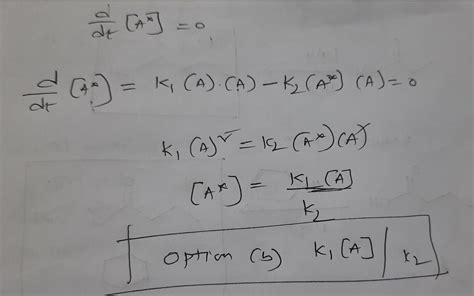 d/dt [A*] = 0
d/dt [A*] = K₁ (A) . (A) – K₂ (A*) (A) = 0
K₁ (A)² = K₂ (A*) (A)
[A*] = K₁ [A] / K₂
Option (b) K₁ [A] / K₂